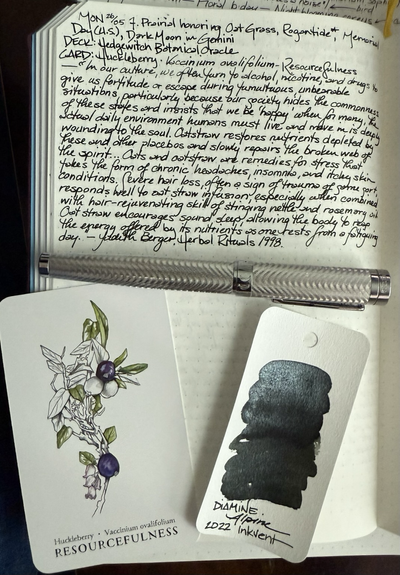 MON 26/05 7. Prairial honoring Oat Grass, Rogantide* Memorial
Day (U.S.), Dark Moon in Gemini
DECK: Hedgewitch Botanical Oracle
CARD: Huckleberry • Vaccinium ovalifolium - Resourcefulness
"In our culture, we often turn to alcohol, nicotine, and drugs to
give us fortitude or escape during tumultuous, unbearable
situations, particularly because our society hides the commonness
of these states and insists that we be happy when for many, the
actual daily environment humans must live and move in is deeply
wounding to the soul. Oatstraw restores nutrients depleted by
these and other placebos and slowly repairs the broken web of
the spirit... Oats and oatstraw are remedies for stress that
takes the form of chronic headaches, insomnia, and itchy skin
conditions. Severe hair loss, often a sign of trauma of some sort,
responds well to oatstraw infusion, especially when combined
with hair-rejuvenating skill of stinging nettle and rosemary and
Oatstraw encourages sound sleep, allowing the body to reap
the energy offered by its nutrients as one rests from a fatiguing
day. — Judith Berger, Herbal Rituals 1998.
Huckleberry • Vaccinium ovalifolium
RESOURCEFULNESS
DIAMINE.
Alpine
2022 Inkvent